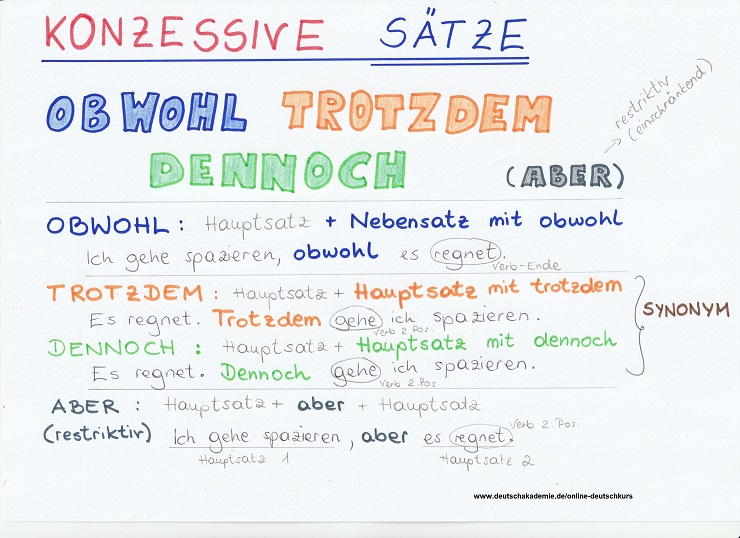 KONZESSIVE SÄTZE
OBWOHL TROTZDEM
→ restriktiv
(einschränkend)
DENNOCH (ABER)
OBWOHL: Hauptsatz + Nebensatz mit obwohl
Ich gehe spazieren, obwohl es regnet.
Verb-Ende
TROTZDEM: Hauptsatz + Hauptsatz mit trotzdem
Es regnet. Trotzdem gehe ich spazieren.
Verb 2.Pos.
SYNONYM
DENNOCH: Hauptsatz + Hauptsatz mit dennoch
Es regnet. Dennoch gehe ich spazieren.
Verb 2.Pos
ABER: Hauptsatz + aber + Hauptsatz
(restriktiv) Ich gehe spazieren, aber es regnet.
Verb 2.Pos.
Hauptsatz 1 Hauptsatz 2
www.deutschakademie.de/online-deutschkurs